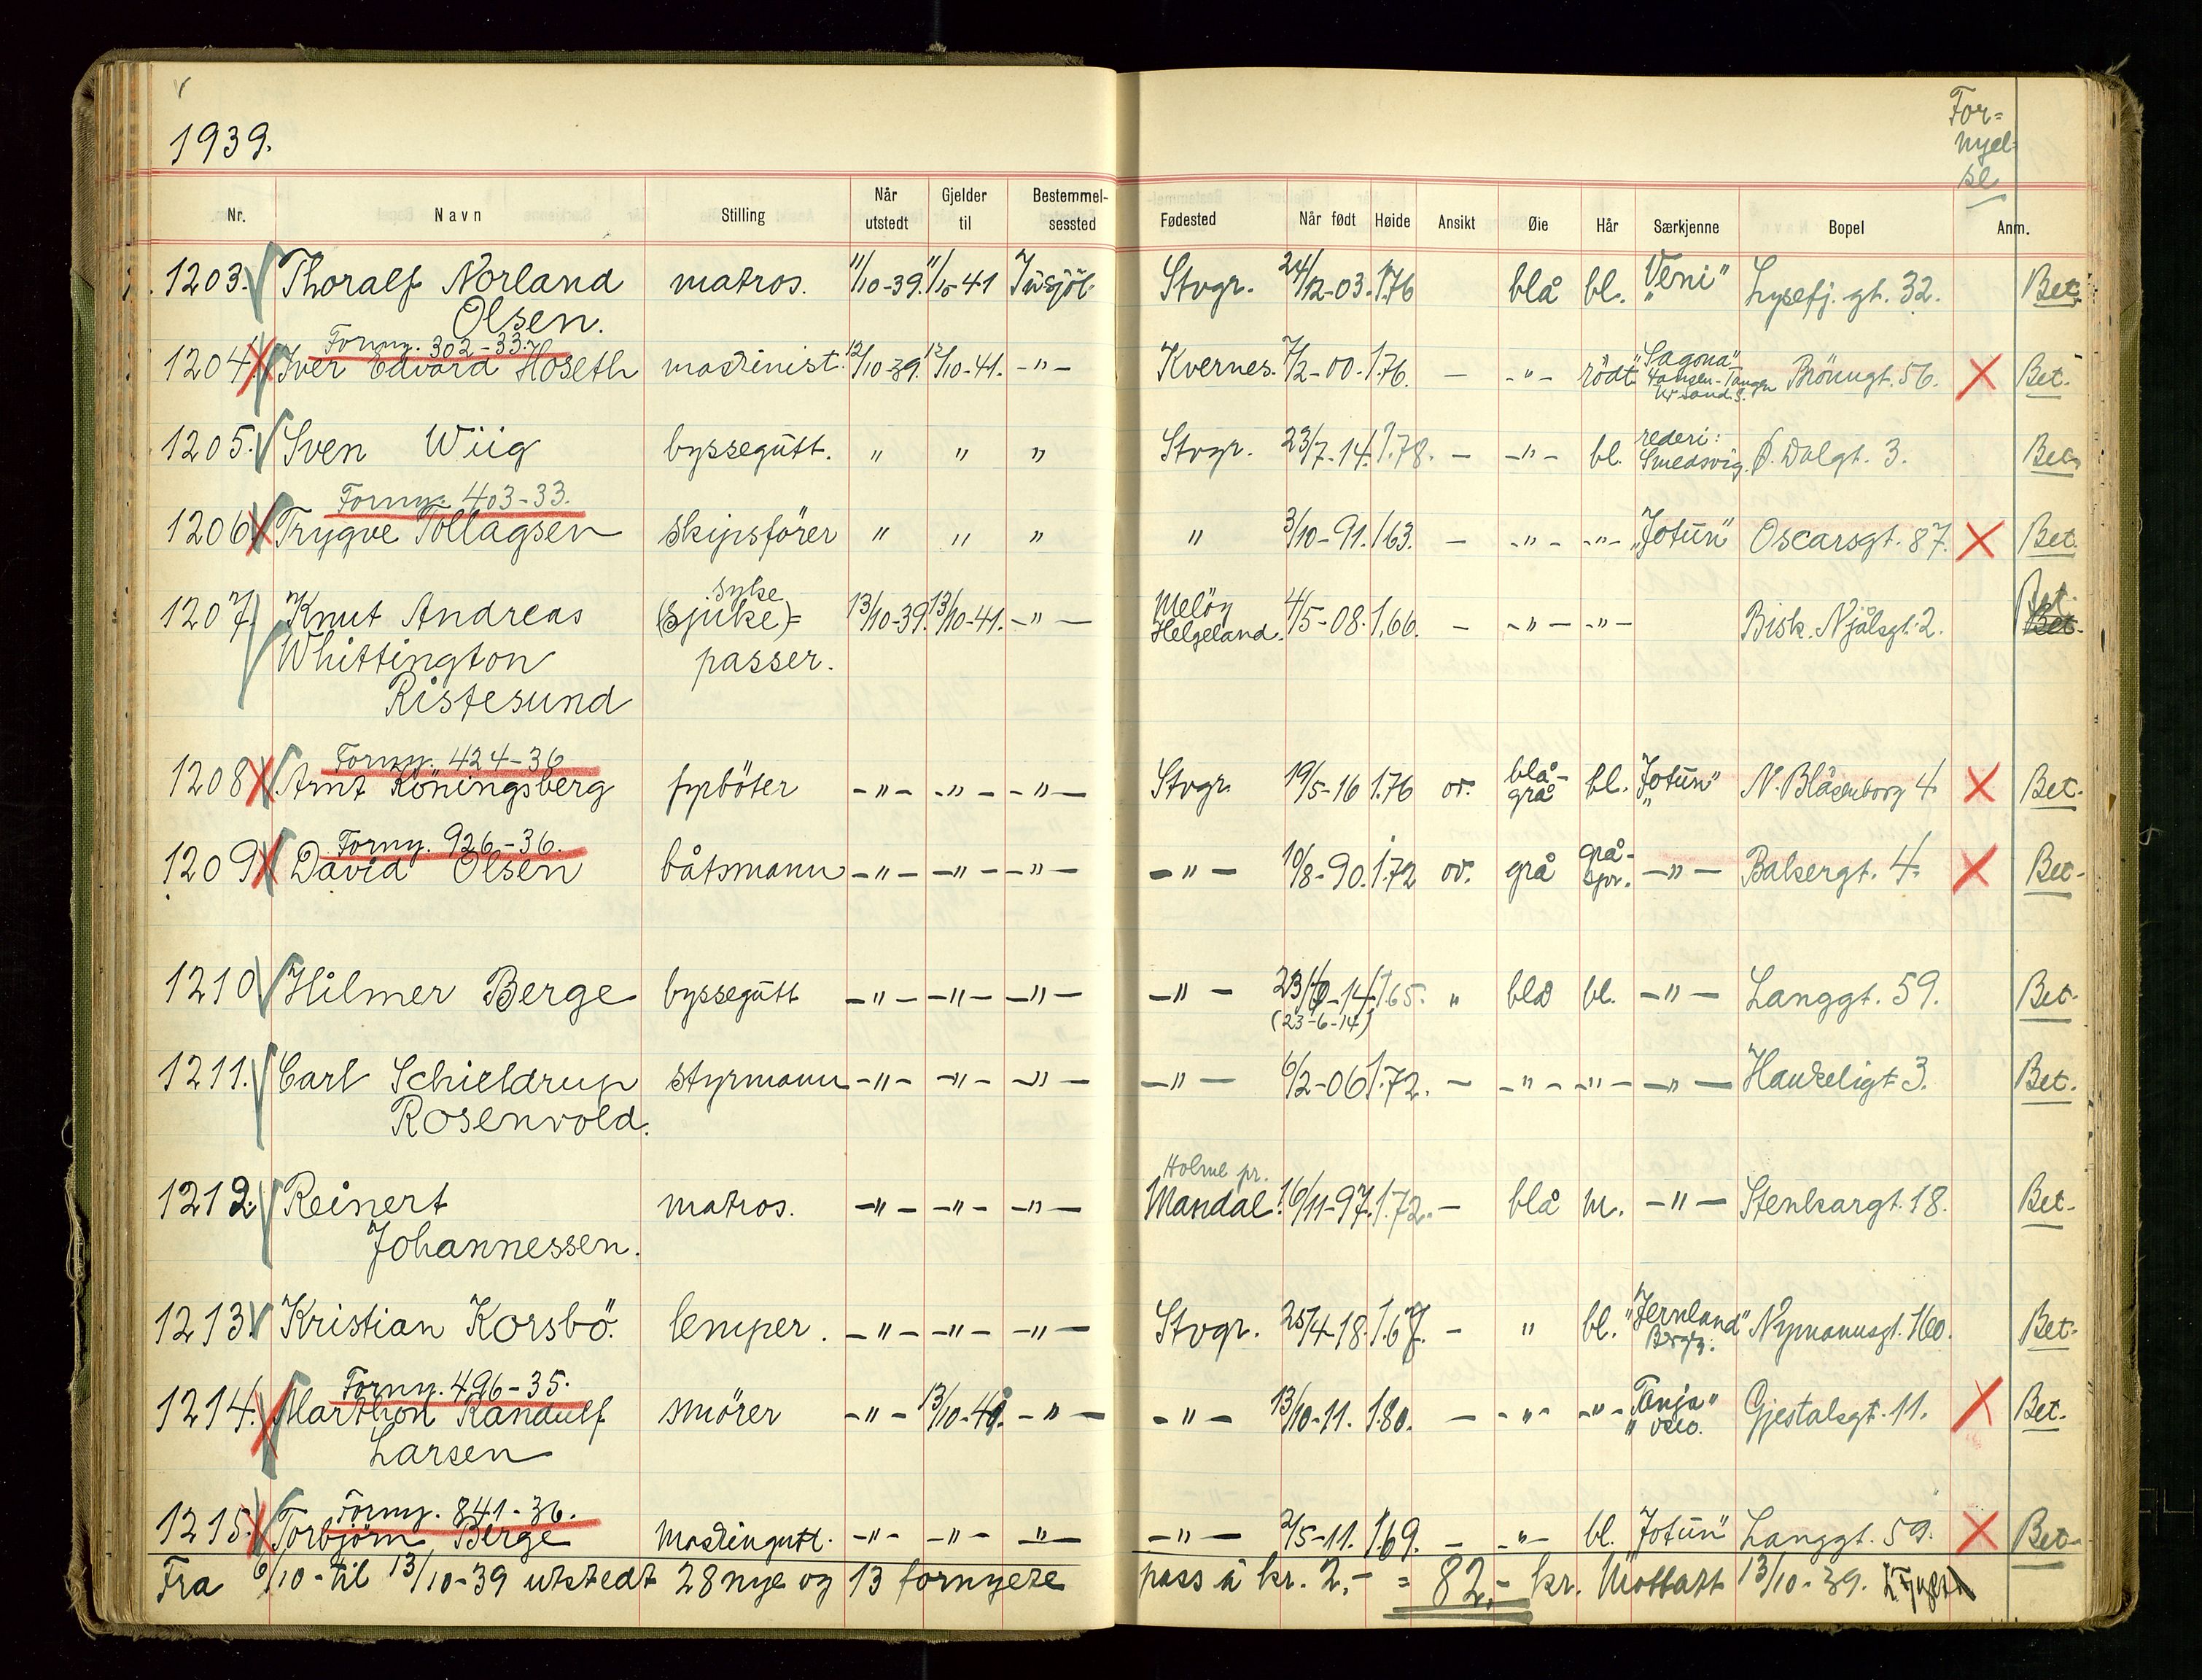 1939.
For=
nyel=
se
Nr. Navn Stilling Når utstedt Gjelder til Bestemmel-sessted Fødested Når født Høide Ansikt Øie Hår Særkjenne Bopel Anm.
1203. Thoralf Norland matros. 11/10-39. 11/10-41 Stvgr. 24/12-03. 1.76 blå bl. "Veni" Lysefj. gt. 32. Bet.
Olsen.
Forny. 302-33.
1204. Iver Edvard Hoseth maskinist. 12/10-39. 12/10-41. -"- Kvernes. 7/2-00. 1.76. - -"- rödt "Sagona" Brönngt. 56. Bet.
Hansen-Tangen
Kr.sand S.
1205. Sven Wiig byssegutt. " " " Stvgr. 23/7-14. 1.78. - -"- bl. rederi: Smedsvig. Ø. Dalgt. 3. Bet.
Forny. 403-33.
1206. Trygve Tollagsen skipsförer " " " " 3/10-91. 1.63. - -"- -"- "Jotun" Oscarsgt. 87. Bet.
syke
1207. Knut Andreas (sjuke)= 13/10-39. 13/10-41. -"- Melöy Helgeland. 4/5-08. 1.66. - -"- -"- Bisk. Njålsgt. 2. Bet.
Whittington passer.
Ristesund
Forny. 424-36
1208 Arnt Köningsberg fyrböter -"- -"- -"- Stvgr. 19/5-16 1.76 ov. blå-grå bl. "Jotun" N. Blåsenborg 4 Bet.
Forny. 926-36.
1209. David Olsen båtsmann -"- -"- -"- -"- 10/8-90. 1.72 ov. grå grå-spr. -"- Bakergt. 4. Bet.
1210 Hilmer Berge byssegutt -"- -"- -"- -"- 23/6-14. 1.65. " blå bl. -"- Langgt. 59. Bet.
(23-6-14)
1211. Carl Schieldrup styrmann -"- -"- -"- -"- 6/2-06 1.72. - -"- -"- -"- Haukeligt 3. Bet.
Rosenvold.
Holme pr.
1212. Reinert matros. -"- -"- -"- Mandal. 16/11-97. 1.72. - blå m. -"- Stenkargt. 18. Bet.
Johannessen.
1213. Kristian Korsbö. lemper. -"- -"- -"- Stvgr. 25/4-18. 1.67. - " bl. "Jernland" Nymannsgt. 160. Bet.
Bergen.
Forny. 496-35.
1214. Marthon Randulf smörer -"- 13/10-40. -"- -"- 13/10-11. 1.80. - -"- -"- "Tanja" Gjestalsgt. 11. Bet.
Larsen Oslo.
Forny. 841-36.
1215. Torbjörn Berge maskingutt. -"- -"- -"- -"- 2/5-11. 1.69. - -"- bl. "Jotun" Langgt. 59. Bet.
Fra 6/10-til 13/10-39 utstedt 28 nye og 13 fornyede pass à kr. 2,- = 82,- kr. Mottatt 13/10-39.